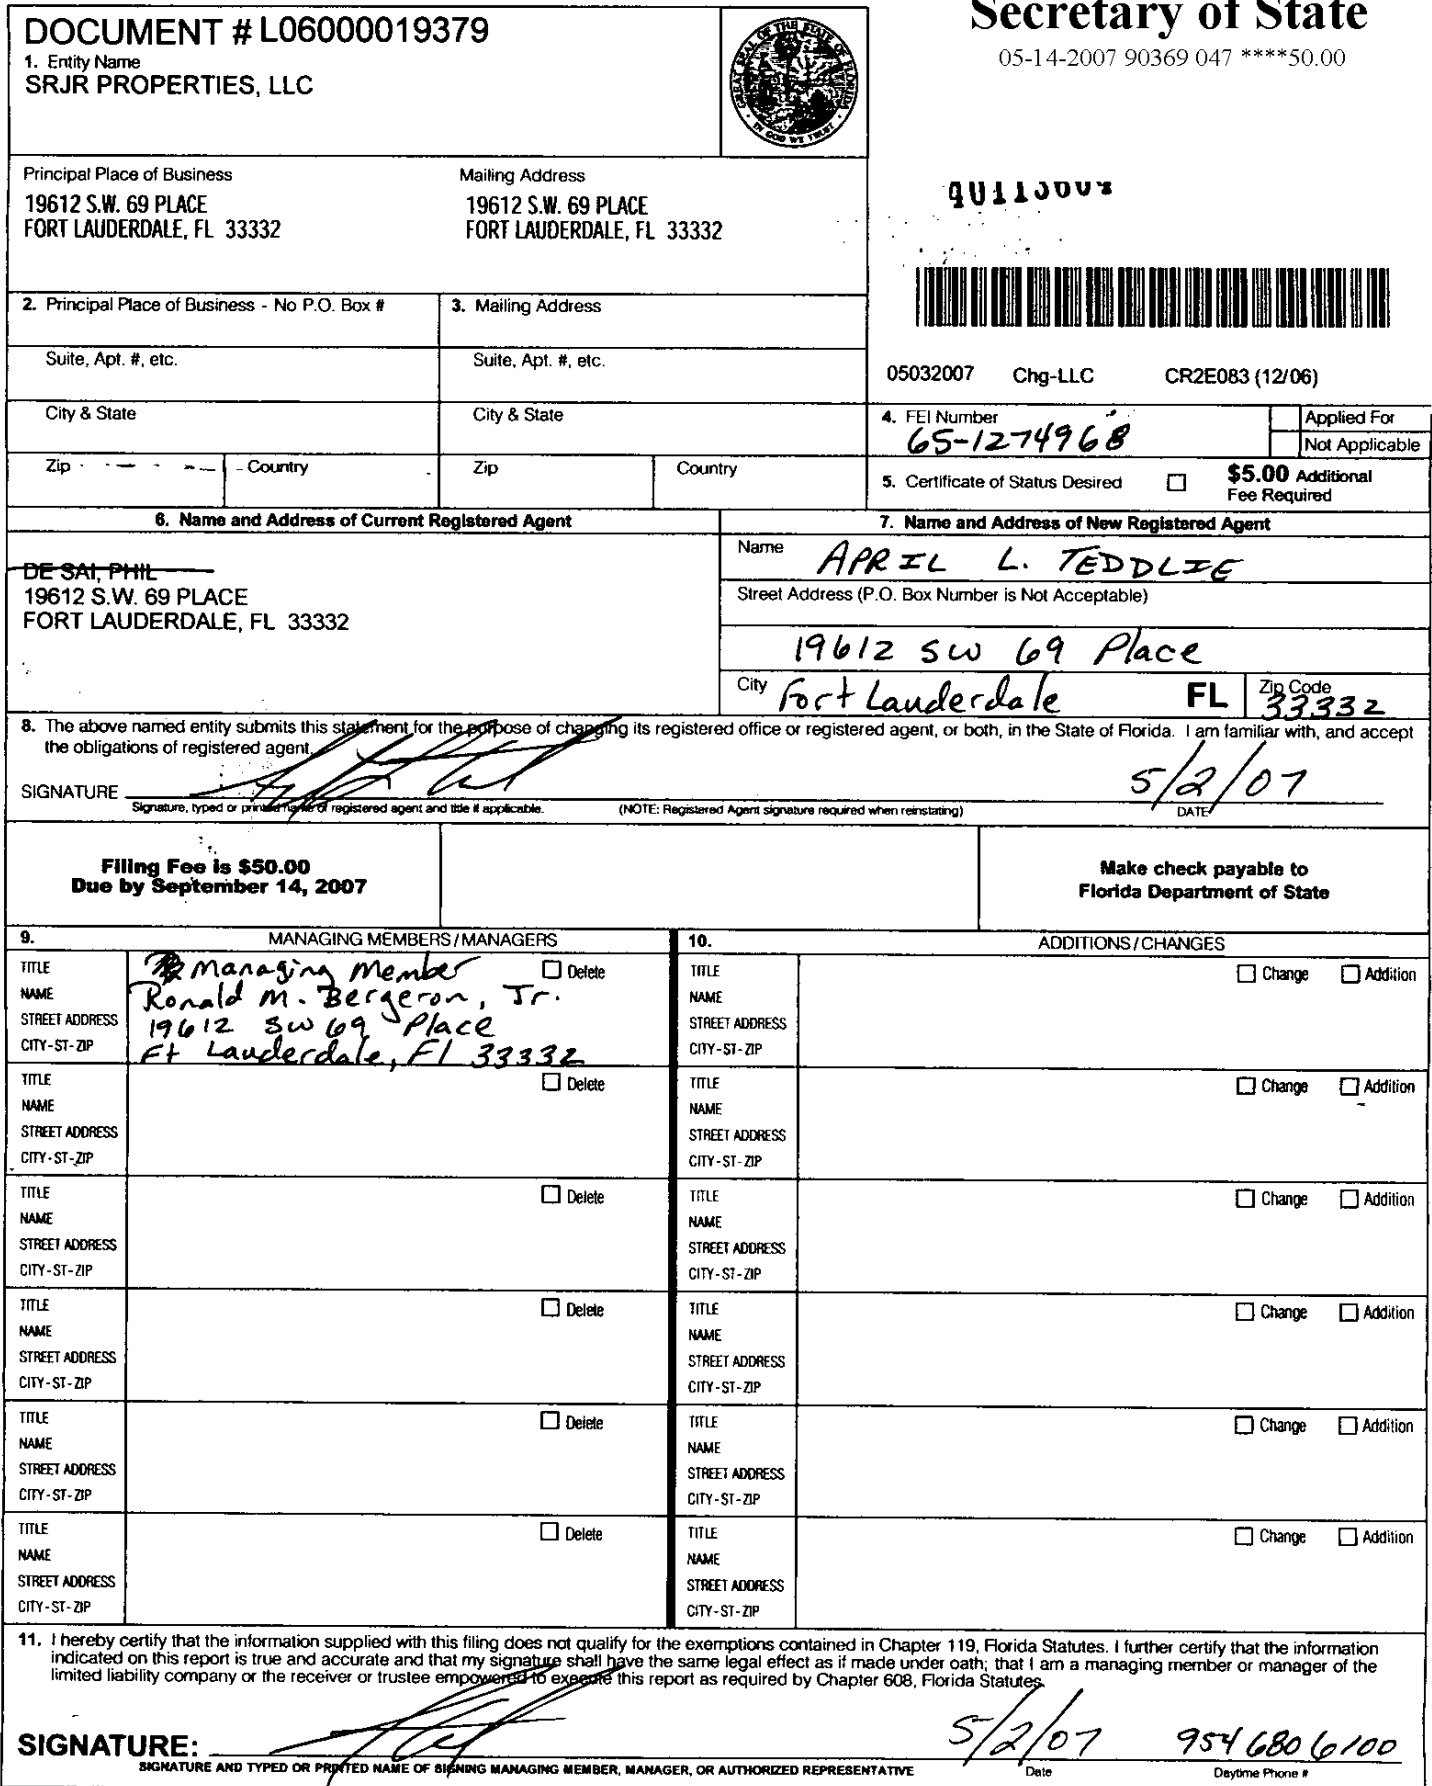 Secretary of State
05-14-2007 90369 047 ****50.00
DOCUMENT # L06000019379
1. Entity Name
SRJR PROPERTIES, LLC
Principal Place of Business
19612 S.W. 69 PLACE
FORT LAUDERDALE, FL 33332
Mailing Address
19612 S.W. 69 PLACE
FORT LAUDERDALE, FL 33332
2. Principal Place of Business - No P.O. Box #
3. Mailing Address
Suite, Apt. #, etc.
Suite, Apt. #, etc.
City & State
City & State
Zip
Country
Zip
Country
05032007 Chg-LLC CR2E083 (12/06)
4. FEI Number
65-1274968
Applied For
Not Applicable
5. Certificate of Status Desired
$5.00 Additional
Fee Required
6. Name and Address of Current Registered Agent
DE SAI, PHIL
19612 S.W. 69 PLACE
FORT LAUDERDALE, FL 33332
7. Name and Address of New Registered Agent
Name APRIL L. TEDDLIE
Street Address (P.O. Box Number is Not Acceptable)
19612 SW 69 Place
City Fort Lauderdale FL Zip Code 33332
8. The above named entity submits this statement for the purpose of changing its registered office or registered agent, or both, in the State of Florida. I am familiar with, and accept
the obligations of registered agent.
SIGNATURE
5/2/07
Signature, typed or printed name of registered agent and title if applicable. (NOTE: Registered Agent signature required when reinstating) DATE
Filing Fee is $50.00
Due by September 14, 2007
Make check payable to
Florida Department of State
9. MANAGING MEMBERS/MANAGERS
10. ADDITIONS/CHANGES
TITLE Managing Member Delete
NAME Ronald M. Bergeron, Jr.
STREET ADDRESS 19612 SW 69 Place
CITY-ST-ZIP Ft Lauderdale, Fl 33332
TITLE Change Addition
NAME
STREET ADDRESS
CITY-ST-ZIP
TITLE Delete
NAME
STREET ADDRESS
CITY-ST-ZIP
TITLE Change Addition
NAME
STREET ADDRESS
CITY-ST-ZIP
TITLE Delete
NAME
STREET ADDRESS
CITY-ST-ZIP
TITLE Change Addition
NAME
STREET ADDRESS
CITY-ST-ZIP
TITLE Delete
NAME
STREET ADDRESS
CITY-ST-ZIP
TITLE Change Addition
NAME
STREET ADDRESS
CITY-ST-ZIP
TITLE Delete
NAME
STREET ADDRESS
CITY-ST-ZIP
TITLE Change Addition
NAME
STREET ADDRESS
CITY-ST-ZIP
TITLE Delete
NAME
STREET ADDRESS
CITY-ST-ZIP
TITLE Change Addition
NAME
STREET ADDRESS
CITY-ST-ZIP
11. I hereby certify that the information supplied with this filing does not qualify for the exemptions contained in Chapter 119, Florida Statutes. I further certify that the information
indicated on this report is true and accurate and that my signature shall have the same legal effect as if made under oath; that I am a managing member or manager of the
limited liability company or the receiver or trustee empowered to execute this report as required by Chapter 608, Florida Statutes.
SIGNATURE: 5/2/07 954 680 6100
SIGNATURE AND TYPED OR PRINTED NAME OF SIGNING MANAGING MEMBER, MANAGER, OR AUTHORIZED REPRESENTATIVE Date Daytime Phone #